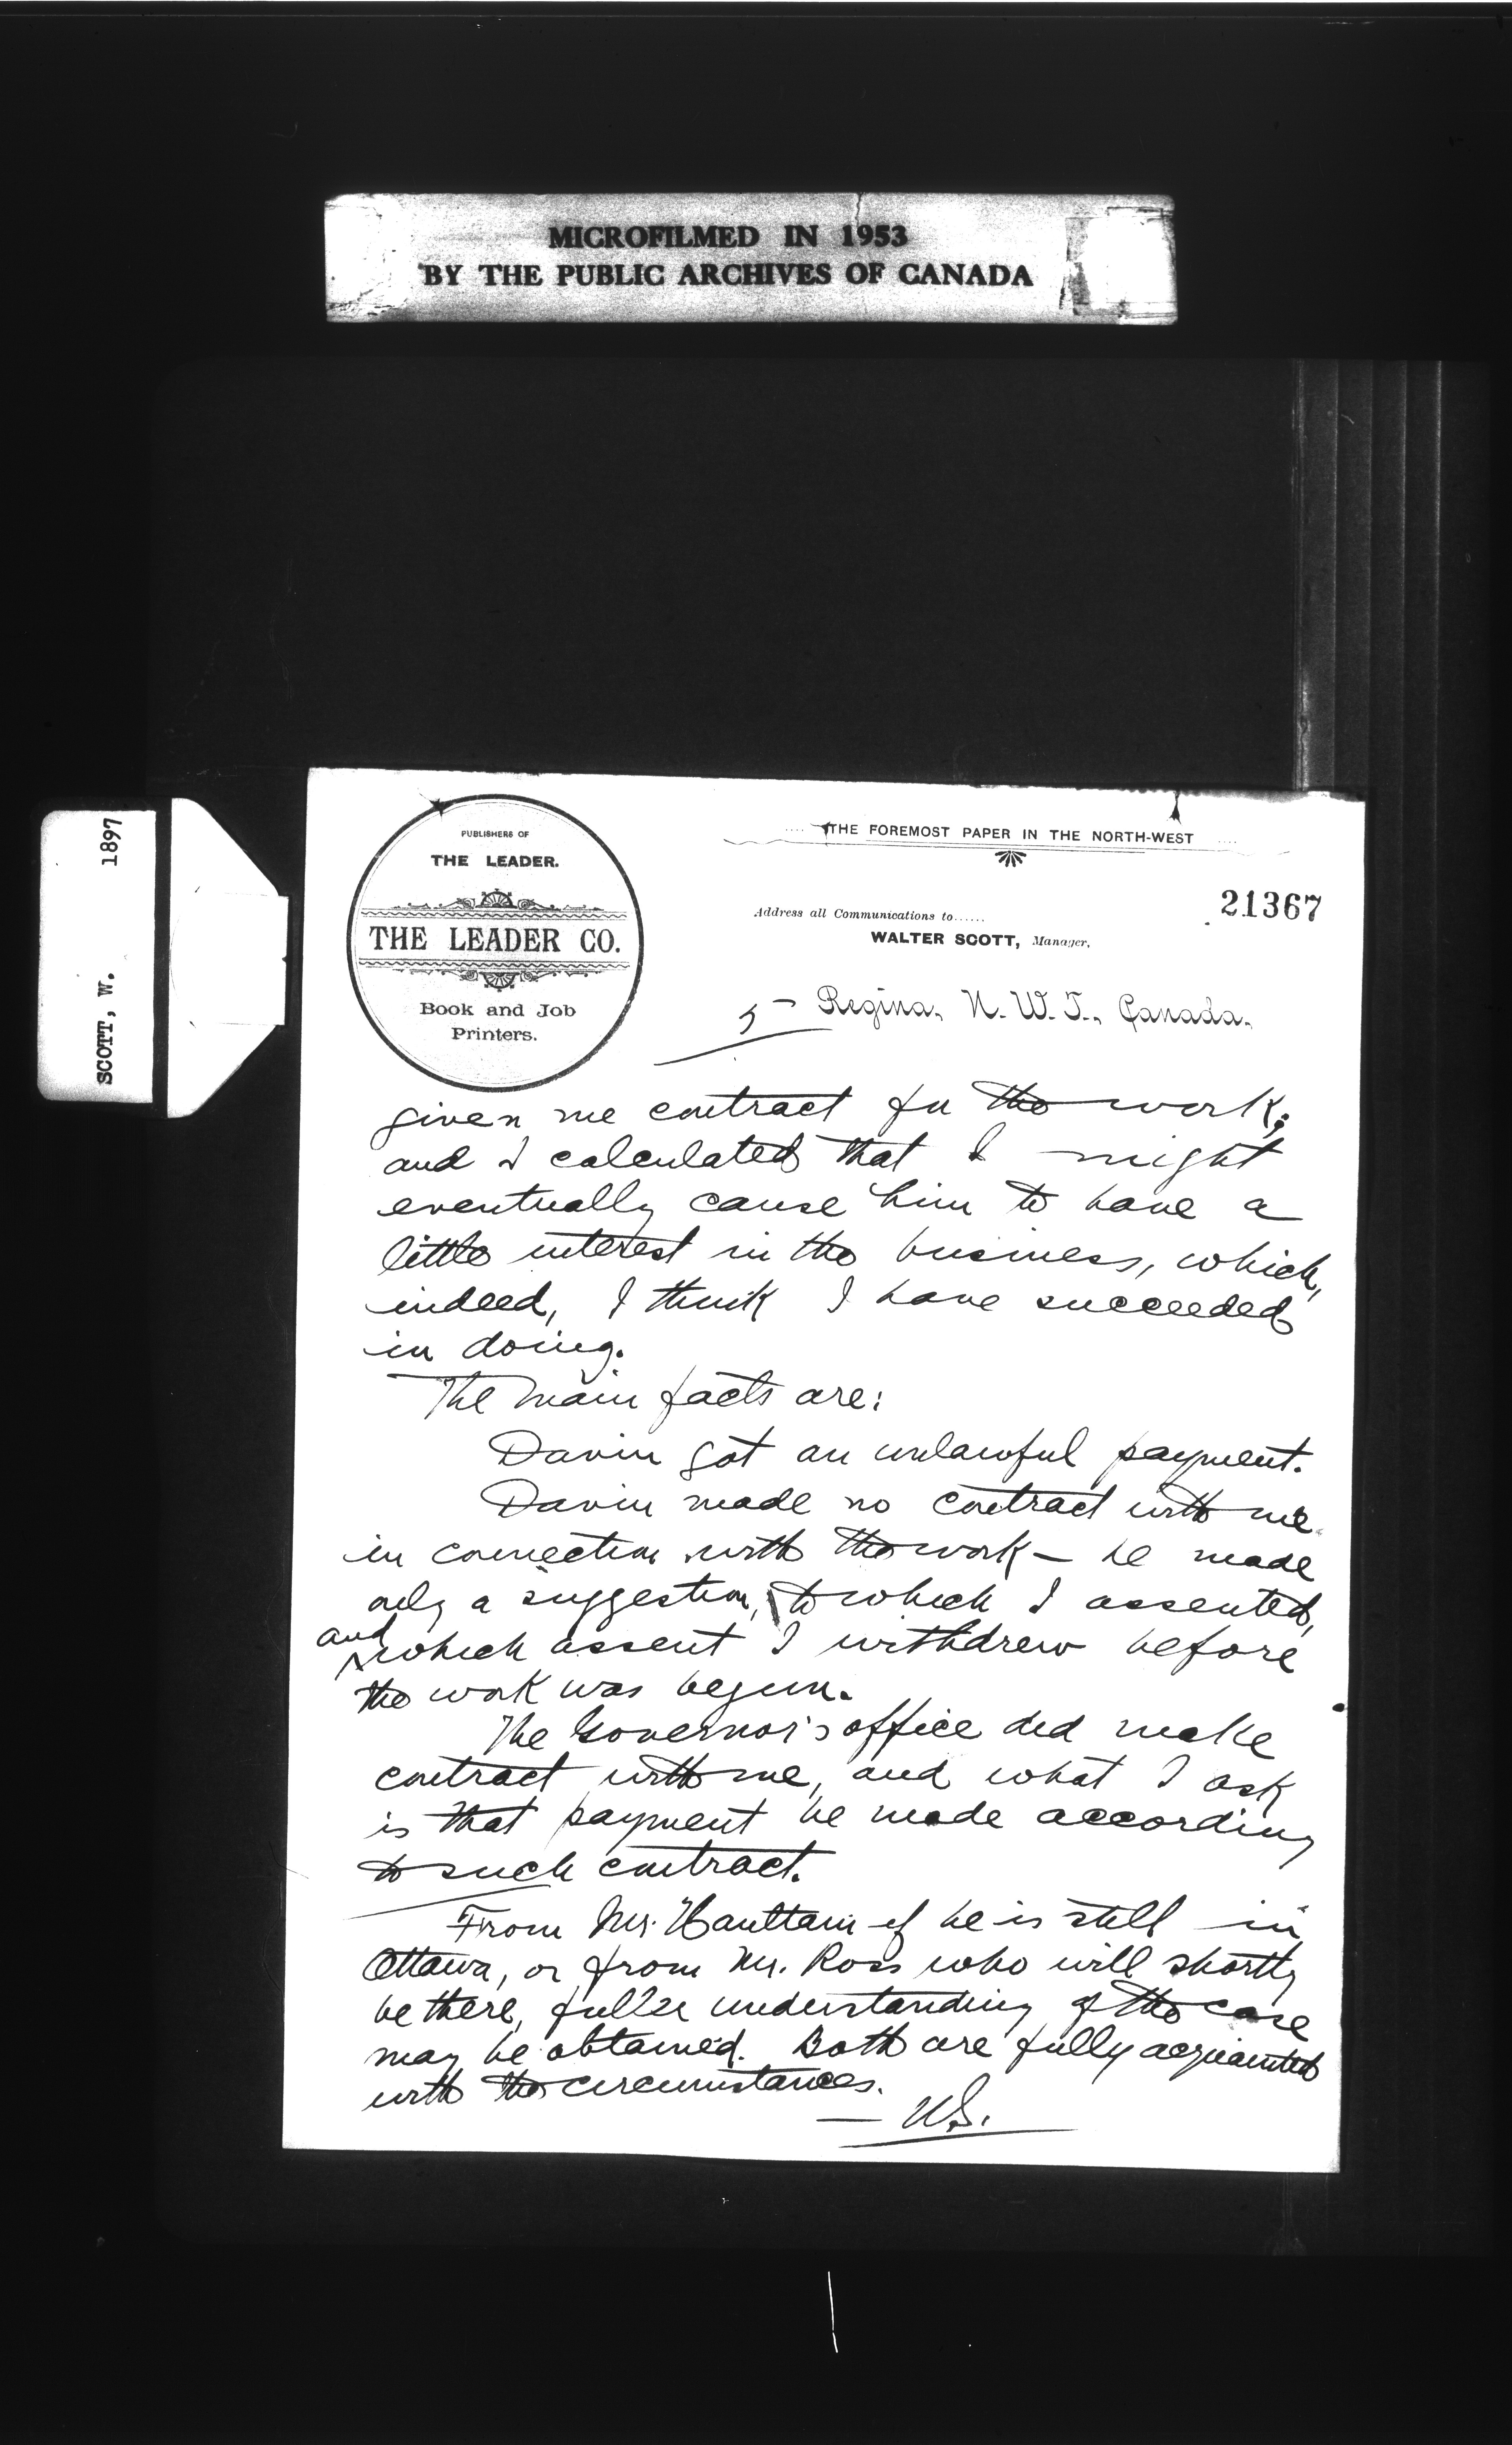 MICROFILMED IN 1953
BY THE PUBLIC ARCHIVES OF CANADA
SCOTT, W. 1897
PUBLISHERS OF
THE LEADER.
THE LEADER CO.
Book and Job
Printers.
THE FOREMOST PAPER IN THE NORTH-WEST
21367
Address all Communications to......
WALTER SCOTT, Manager.
5- Regina, N. W. T., Canada.
given me contract for the work;
and I calculated that I might
eventually cause him to have a
little interest in the business, which,
indeed, I think I have succeeded
in doing.
The main facts are:
Davin got an unlawful payment.
Davin made no contract with me
in connection with the work — he made
only a suggestion, to which I assented,
and which assent I withdrew before
the work was begun.
The Governor's office did make
contract with me, and what I ask
is that payment be made according
to such contract.
From Mr. Haultain if he is still in
Ottawa, or from Mr. Ross who will shortly
be there, fuller understanding of the case
may be obtained. Both are fully acquainted
with the circumstances.
— W.S.